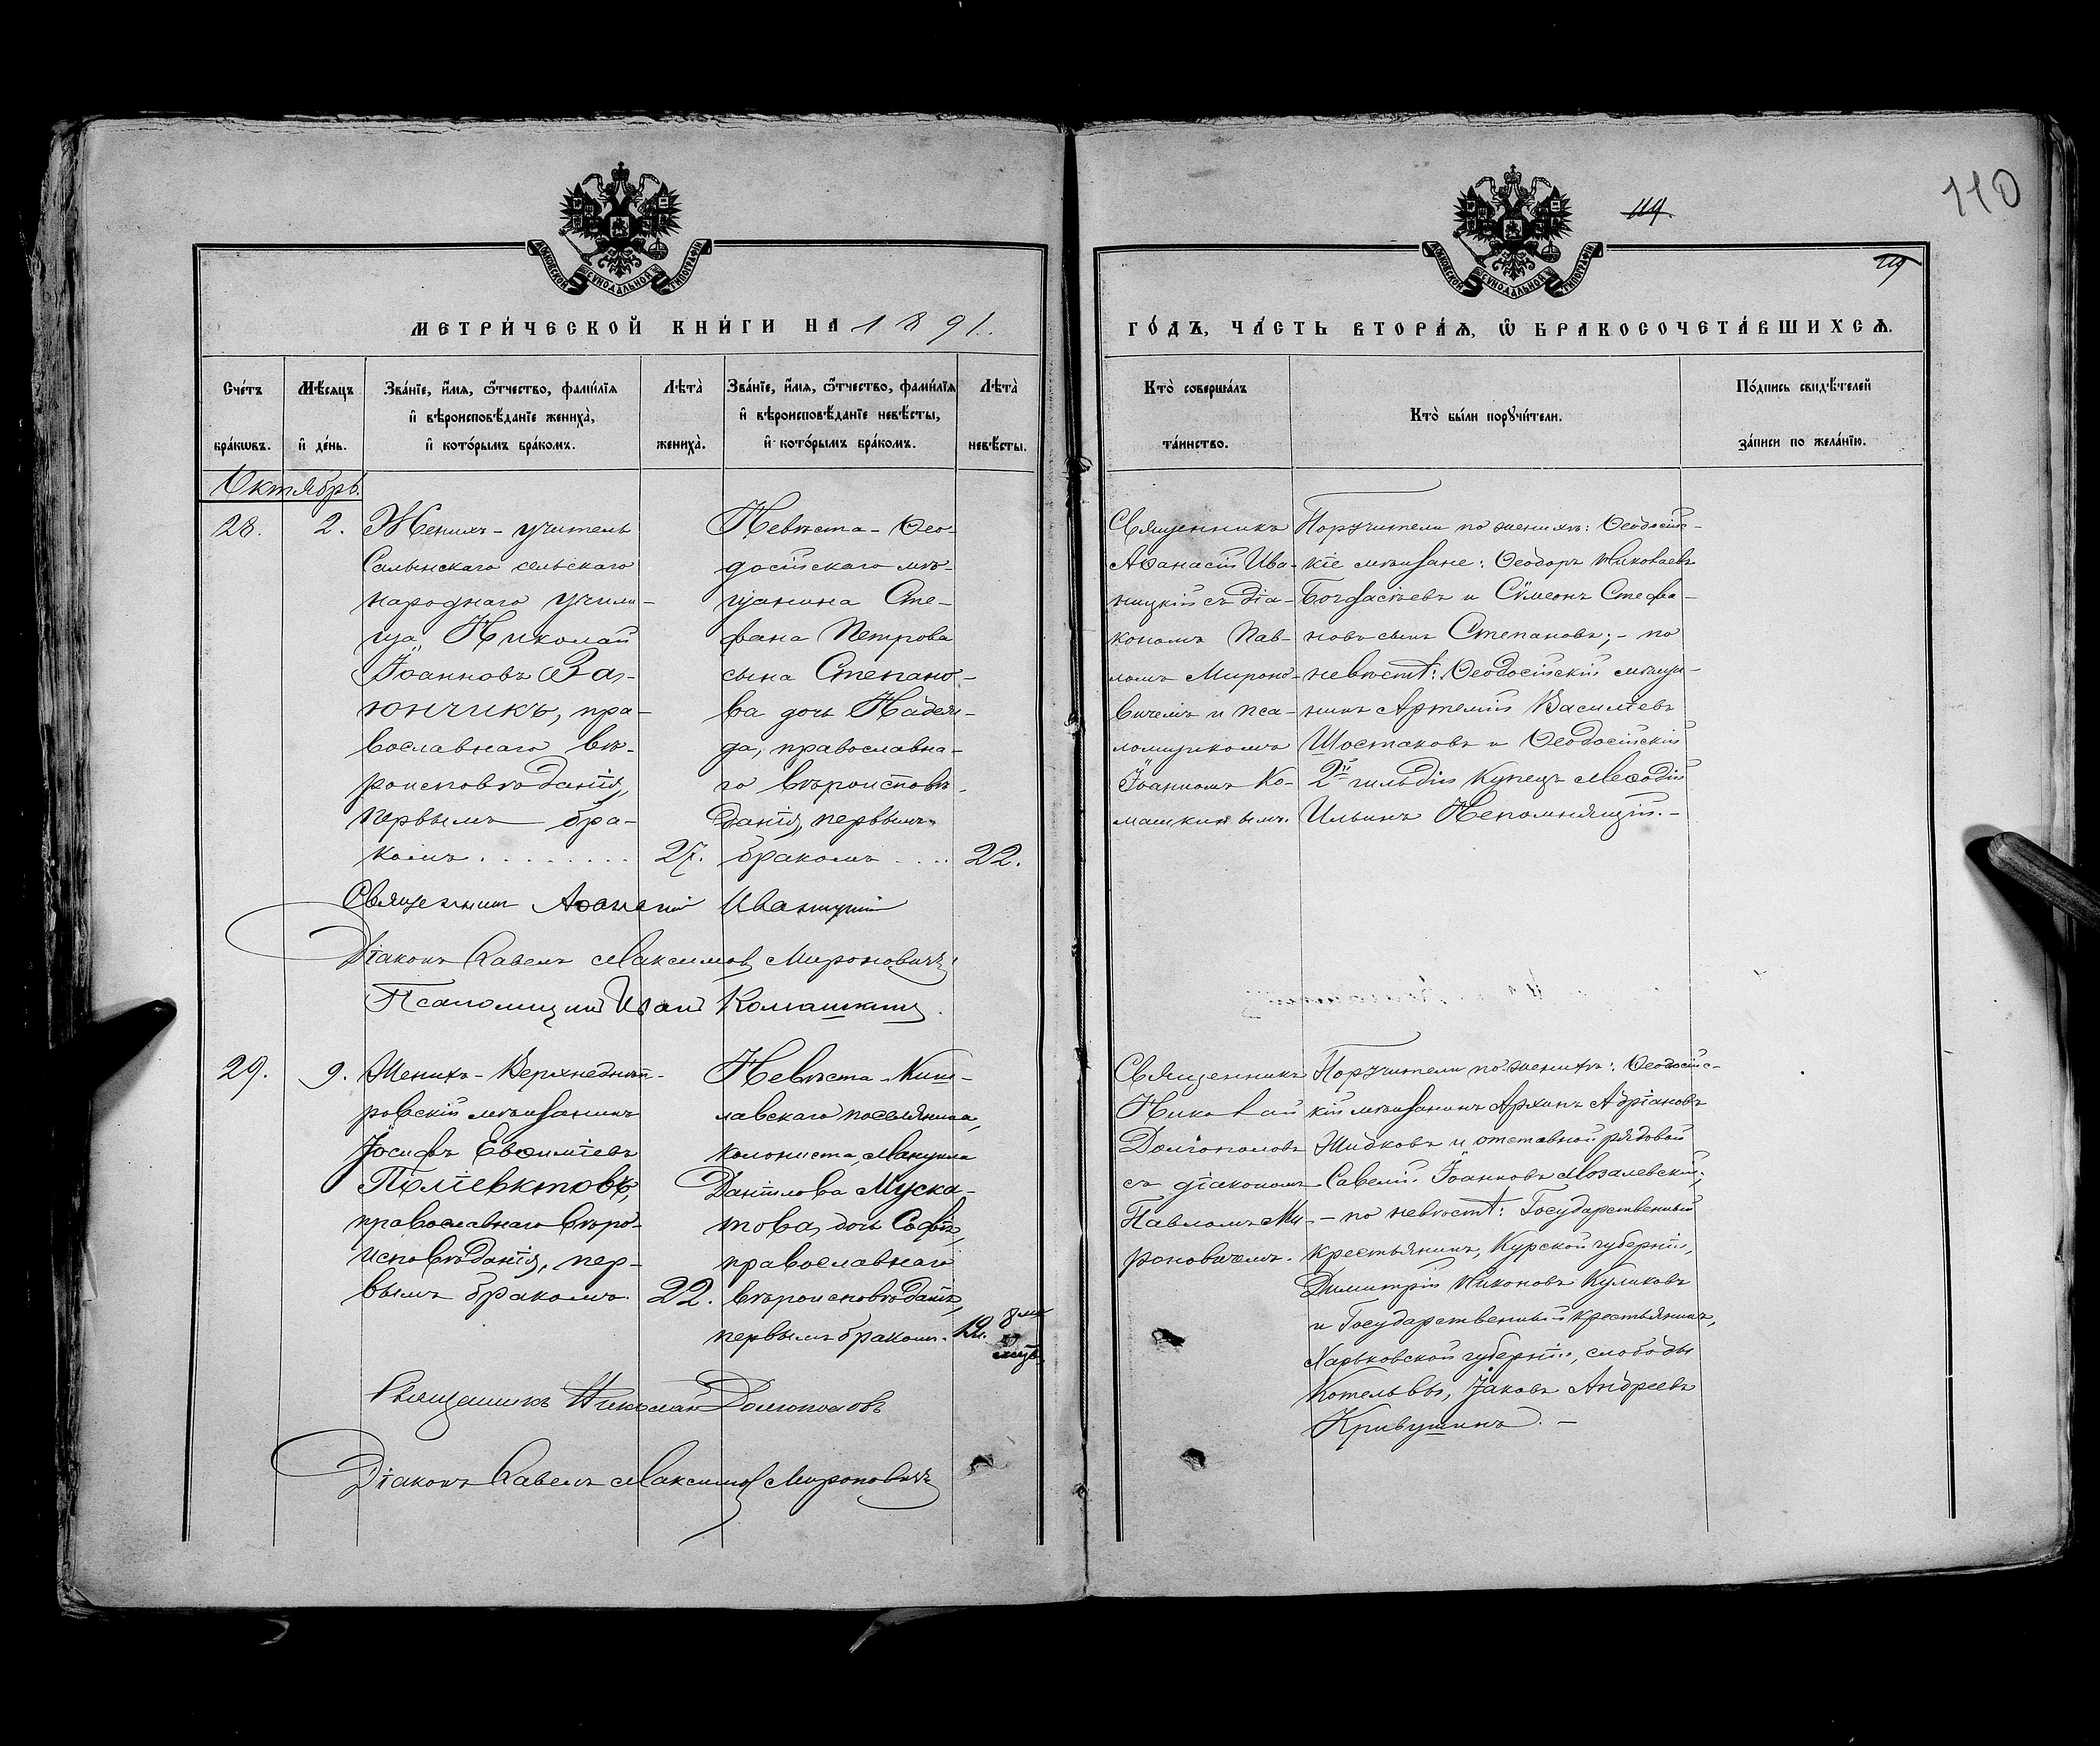 110
119.
119
МОСКОВСКОЙ СѴНОДАЛЬНОЙ ТИПОГРАФІИ
МОСКОВСКОЙ СѴНОДАЛЬНОЙ ТИПОГРАФІИ
МЕТРИ́ЧЕСКОЙ КНИ́ГИ НА 1891.
ГО́ДЪ, ЧА́СТЬ ВТОРА́Ѧ, Ѽ БРАКОСОЧЕТА́ВШИХСѦ.
Сче́тъ
бра́кωвъ.
Мѣ́сяцъ
и҆ де́нь.
Зва́нїе, и҆́мя, ѻ҆́тчество, фами́лїя
и҆ вѣроисповѣ́данїе жениха̀,
и҆ кото́рымъ бра́комъ.
Лѣта̀
жениха̀.
Зва́нїе, и҆́мя, ѻ҆́тчество, фами́лїя
и҆ вѣроисповѣ́данїе невѣ́сты,
и҆ кото́рымъ бра́комъ.
Лѣта̀
невѣ́сты.
Кто̀ соверша́лъ
та́инство.
Кто̀ бы́ли порꙋчи́тели.
По́дпись свидѣ́телей
за́писи по жела́нїю.
Октябрь.
28.
2.
Женихъ - учитель
Салынскаго сельскаго
народнаго учили-
ща Николай
Іоанновъ За-
юнчикъ, пра-
вославнаго вѣ-
роисповѣданія,
первымъ бра-
комъ . . . . . . . .
27.
Невѣста - Ѳео-
досійскаго мѣ-
щанина Сте-
фана Петрова
сына Степано-
ва дочь Надеж-
да, православна-
го вѣроисповѣ-
данія, первымъ
бракомъ . . . .
22.
Священникъ
Аѳанасій Ива-
ницкій съ діа-
кономъ Пав-
ломъ Мироно-
вичемъ и пса-
ломщикомъ
Іоанномъ Ко-
машкинымъ.
Поручители по женихѣ: Ѳеодосійс-
кіе мѣщане: Ѳеодоръ Николаевъ
и Сѵмеонъ Стефа-
новъ сынъ Степановъ; - по
невѣстѣ: Ѳеодосійскій мѣща-
нинъ Артемій Василіевъ
Шостаковъ и Ѳеодосійскій
2й гильдіи Купецъ Меѳодій
Ильинъ Непомнящій. -
Священникъ Аѳанасій Иваницкій
Діаконъ Павелъ Максимовъ Мироновичъ
Псаломщикъ Иванъ Комашкинъ.
29.
9.
Женихъ - Верхнеднѣп-
ровскій мѣщанинъ
Іосифъ Евѳиміевъ
Поліевктовъ,
православнаго вѣро-
исповѣданія, пер-
вымъ бракомъ.
22.
Невѣста - Киш-
лавскаго поселянина,
колониста, Мануила
Даніилова Муска-
това, дочь Софія,
православнаго
вѣроисповѣданія,
первымъ бракомъ.
Священникъ
Николай
Долгополовъ
съ діакономъ
Павломъ Ми-
роновичемъ.
Поручители по женихѣ: Ѳеодосійс-
кій мѣщанинъ Архипъ Адріановъ
Жидковъ и отставной рядовой
Савелій Іоанновъ Мозалевскій;
- по невѣстѣ: Государственный
крестьянинъ, Курской губерніи,
Димитрій Никоновъ Куликовъ
и Государственный крестьянинъ,
Харьковской губерніи, слободы
Котельвы, Іаковъ Андреевъ
Кривушинъ. -
Священникъ Николай Долгополовъ
Діаконъ Павелъ Максимовъ Мироновичъ